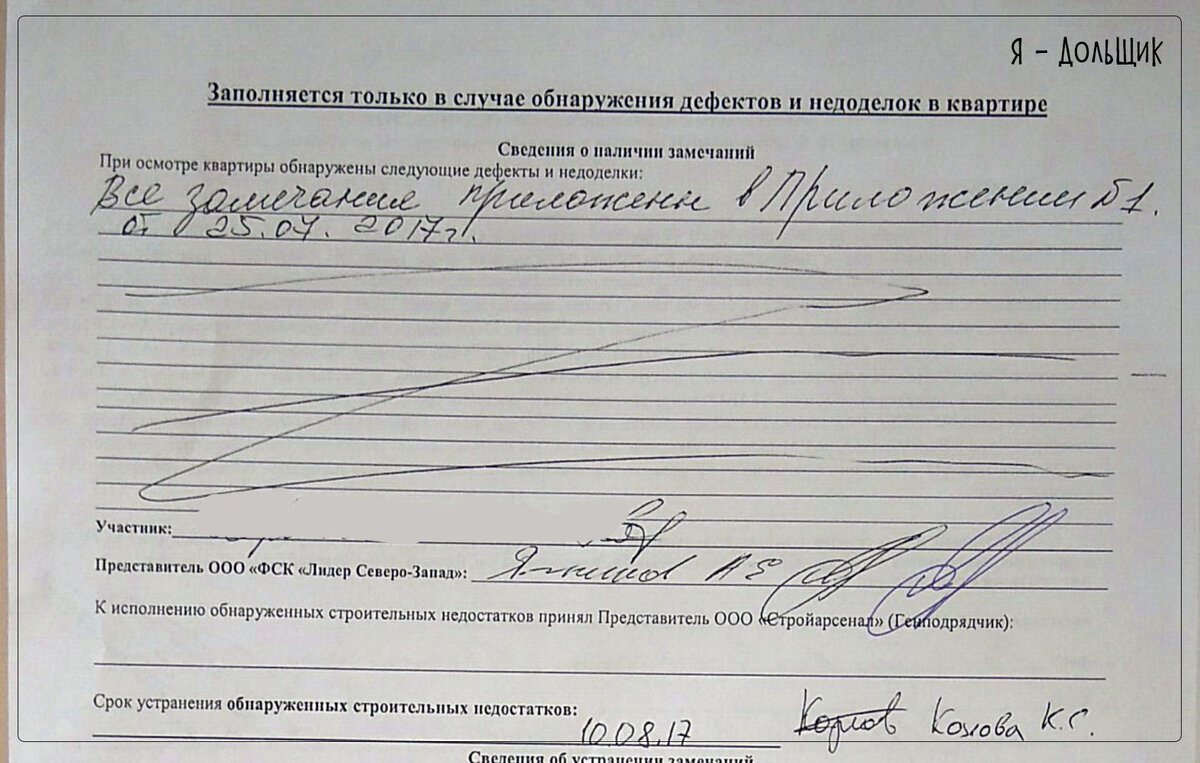 Я - ДОЛЬЩИК
Заполняется только в случае обнаружения дефектов и недоделок в квартире
Сведения о наличии замечаний
При осмотре квартиры обнаружены следующие дефекты и недоделки:
Все замечание приложены в Приложении №1.
от 25.07.2017г.
Участник:
Представитель ООО «ФСК «Лидер Северо-Запад»: А Е
К исполнению обнаруженных строительных недостатков принял Представитель ООО «Стройарсенал» (Генподрядчик):
Срок устранения обнаруженных строительных недостатков:
10.08.17 К.С.
Сведения об устранении замечаний